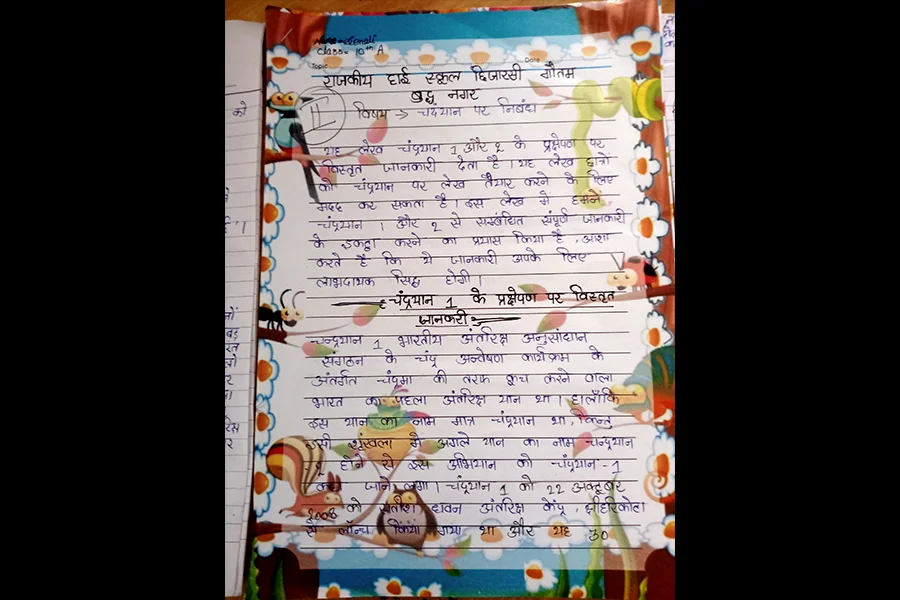 Class- 10th A
Topic
Date
राजकीय हाई स्कूल द्विजारसी गौतम
बुद्ध नगर
विषय → चंद्रयान पर निबंध
यह लेख चंद्रयान 1 और 2 के प्रक्षेपण पर
विस्तृत जानकारी देता है। यह लेख छात्रों
को चंद्रयान पर लेख तैयार करने के लिए
मदद कर सकता है। इस लेख में हमने
चंद्रयान 1 और 2 से सम्बंधित संपूर्ण जानकारी
के इकट्ठा करने का प्रयास किया है, आशा
करते है कि ये जानकारी आपके लिए
लाभदायक सिद्ध होगी।
चंद्रयान 1 के प्रक्षेपण पर विस्तृत
जानकरी
चन्द्रयान 1 भारतीय अंतरिक्ष अनुसंधान
संगठन के चंद्र अन्वेषण कार्यक्रम के
अंतर्गत चंद्रमा की तरफ कूच करने वाला
भारत का पहला अंतरिक्ष यान था। हालाँकि
इस यान का नाम मात्र चंद्रयान था, किन्तु
इसी शृंखला में अगले यान का नाम चन्द्रयान
2 होने से इस अभियान को चंद्रयान-1
कहा जाने लगा। चंद्रयान 1 को 22 अक्टूबर
2008 को सतीश धवन अंतरिक्ष केंद्र, श्रीहरिकोटा
से लॉन्च किया गया था और यह 30